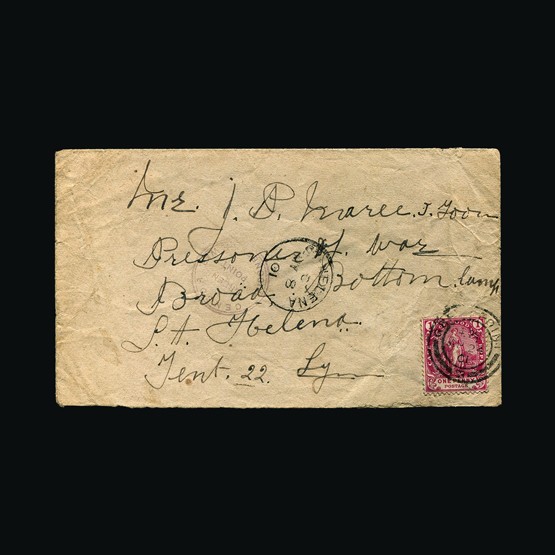 Mr. J. D. Maree. J. Zoon
Pressoner of. War
Broad Bottom. Camp
S.t. Helena
Tent. 22.
ST HELENA
01
ONE PENNY
POSTAGE